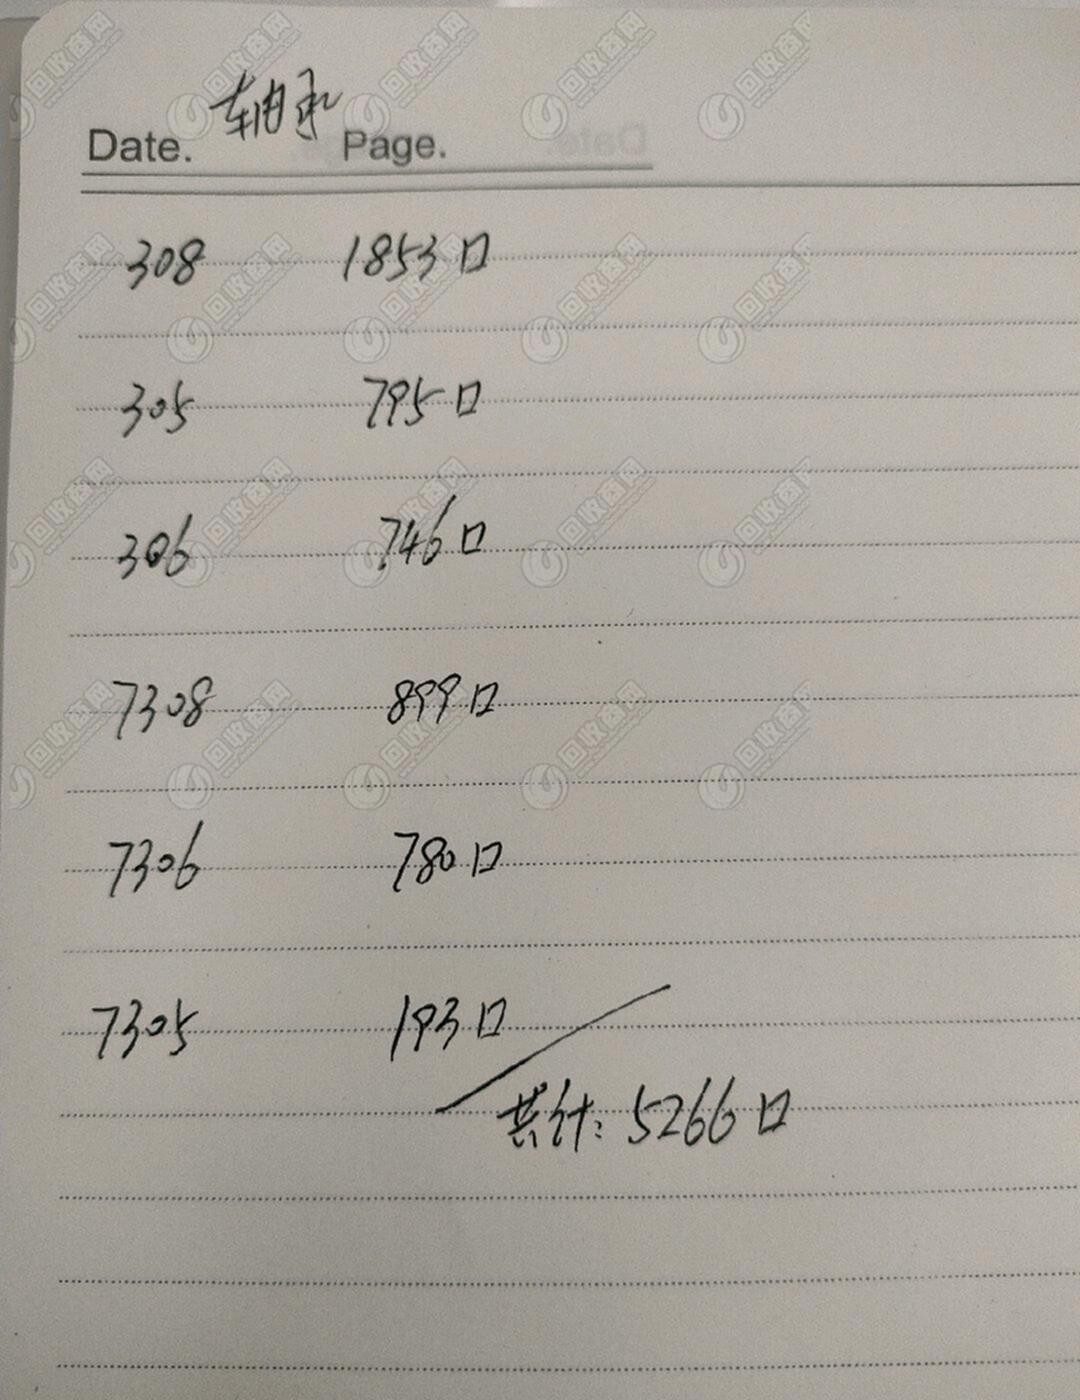 轴承
Date. Page.
308 1853口
305 795口
306 746口
7308 899口
7306 780口
7305 193口
共计: 5266口
回收商网